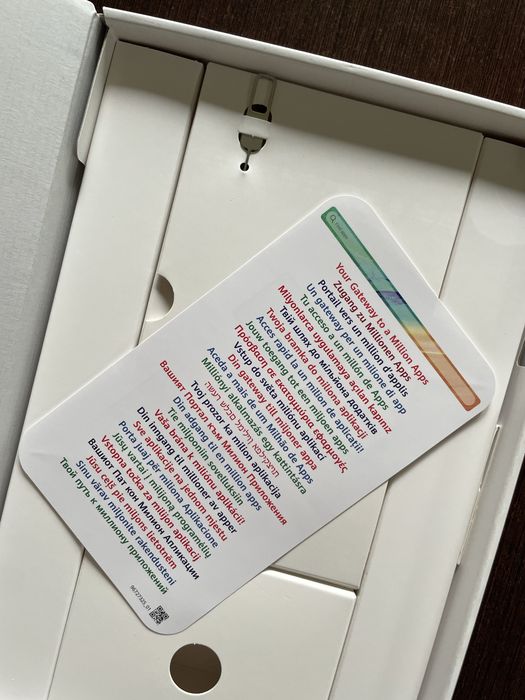 Find apps
Your Gateway to a Million Apps
Zugang zu Millionen Apps
Portail vers un million d'applis
Un gateway per un milione di app
Tu acceso a un millón de Apps
Milyonlarca uygulamaya açılan kapınız
Твій шлях до мільйона додатків
Twoja bramka do miliona aplikacji
Acces rapid la un milion de aplicații!
Jouw toegang tot een miljoen apps
Πρόσβαση σε εκατομμύρια εφαρμογές
Vstup do světa milionu aplikací
Din gateway till miljoner appar
Aceda a mais de um Milhão de Apps
Milliónyi alkalmazás egy kattintásra
Вашият Портал към Милион Приложения
Tvoj prozor ka milion aplikacija
Din adgang til en million apps
Tie miljooniin sovelluksiin
Din inngang til millioner av apper
Vaša brána k miliónu aplikácií!
Sve aplikacije na jednom mjestu
Jūsų vartai į milijoną programėlių
Porta juaj për miliona Aplikacione
Vstopna točka za milijon aplikacij
Вашиот Влат кон Милион Апликации
Jūsu ceļš pie miljons lietotnēm
Sinu värav miljonite rakendusteni
Твой путь к миллиону приложений
96727325_01